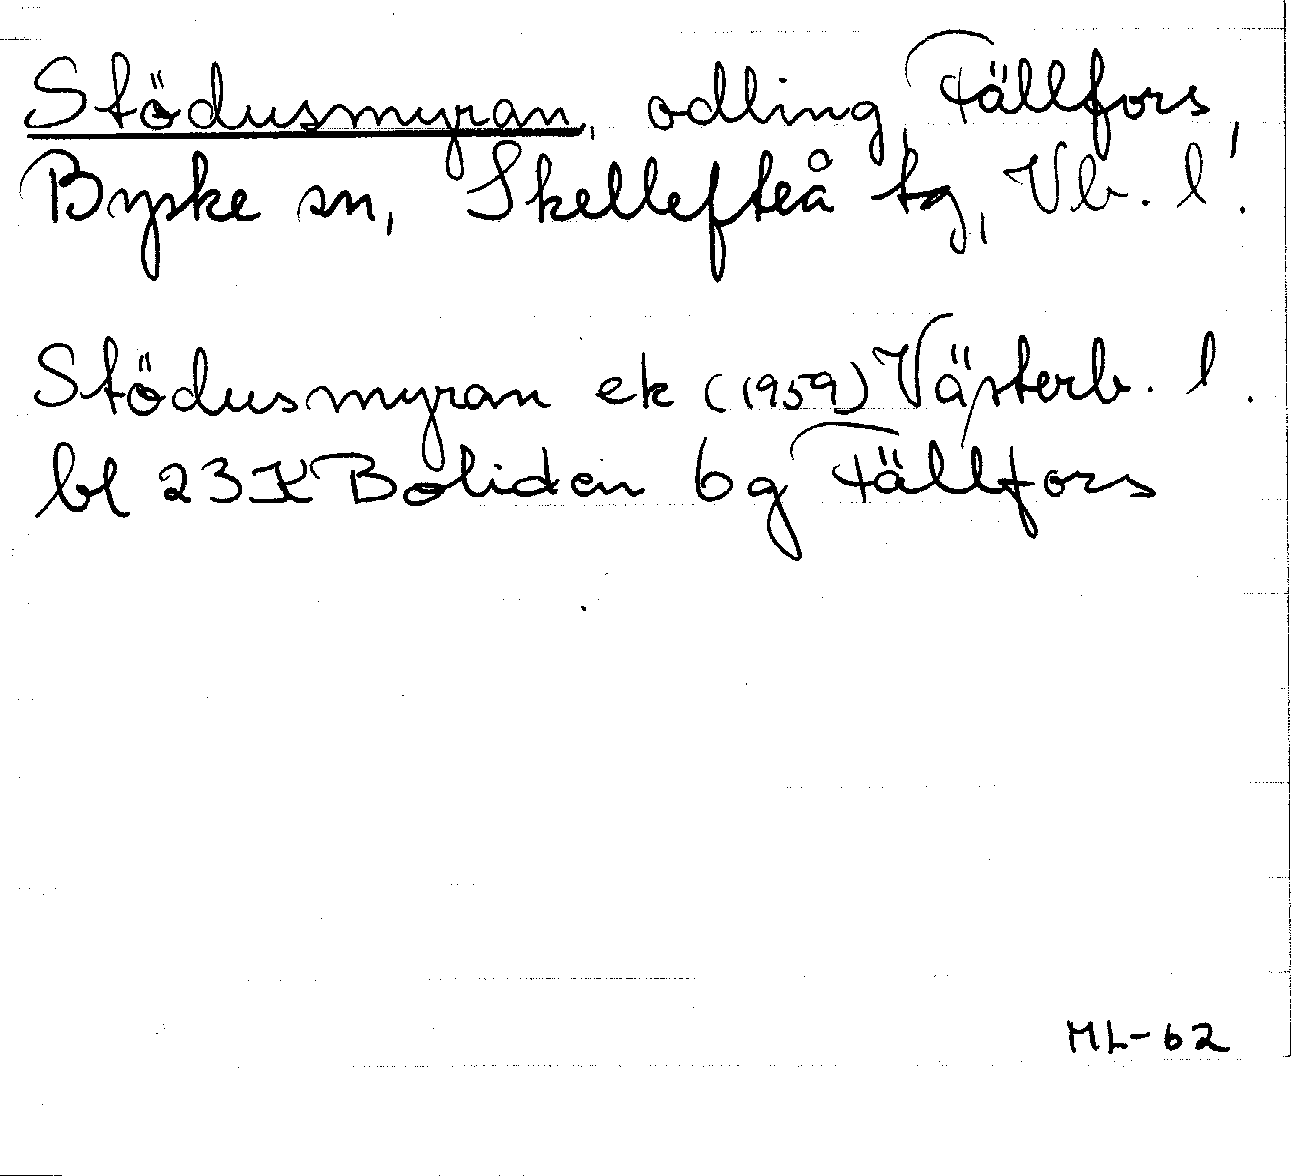 Stödusmyran, odling, Fällfors,
Byske sn, Skellefteå tg, Vb. l.
Stödusmyran ek (1959) Västerb. l.
bl 23K Boliden 6g Fällfors
ML-62